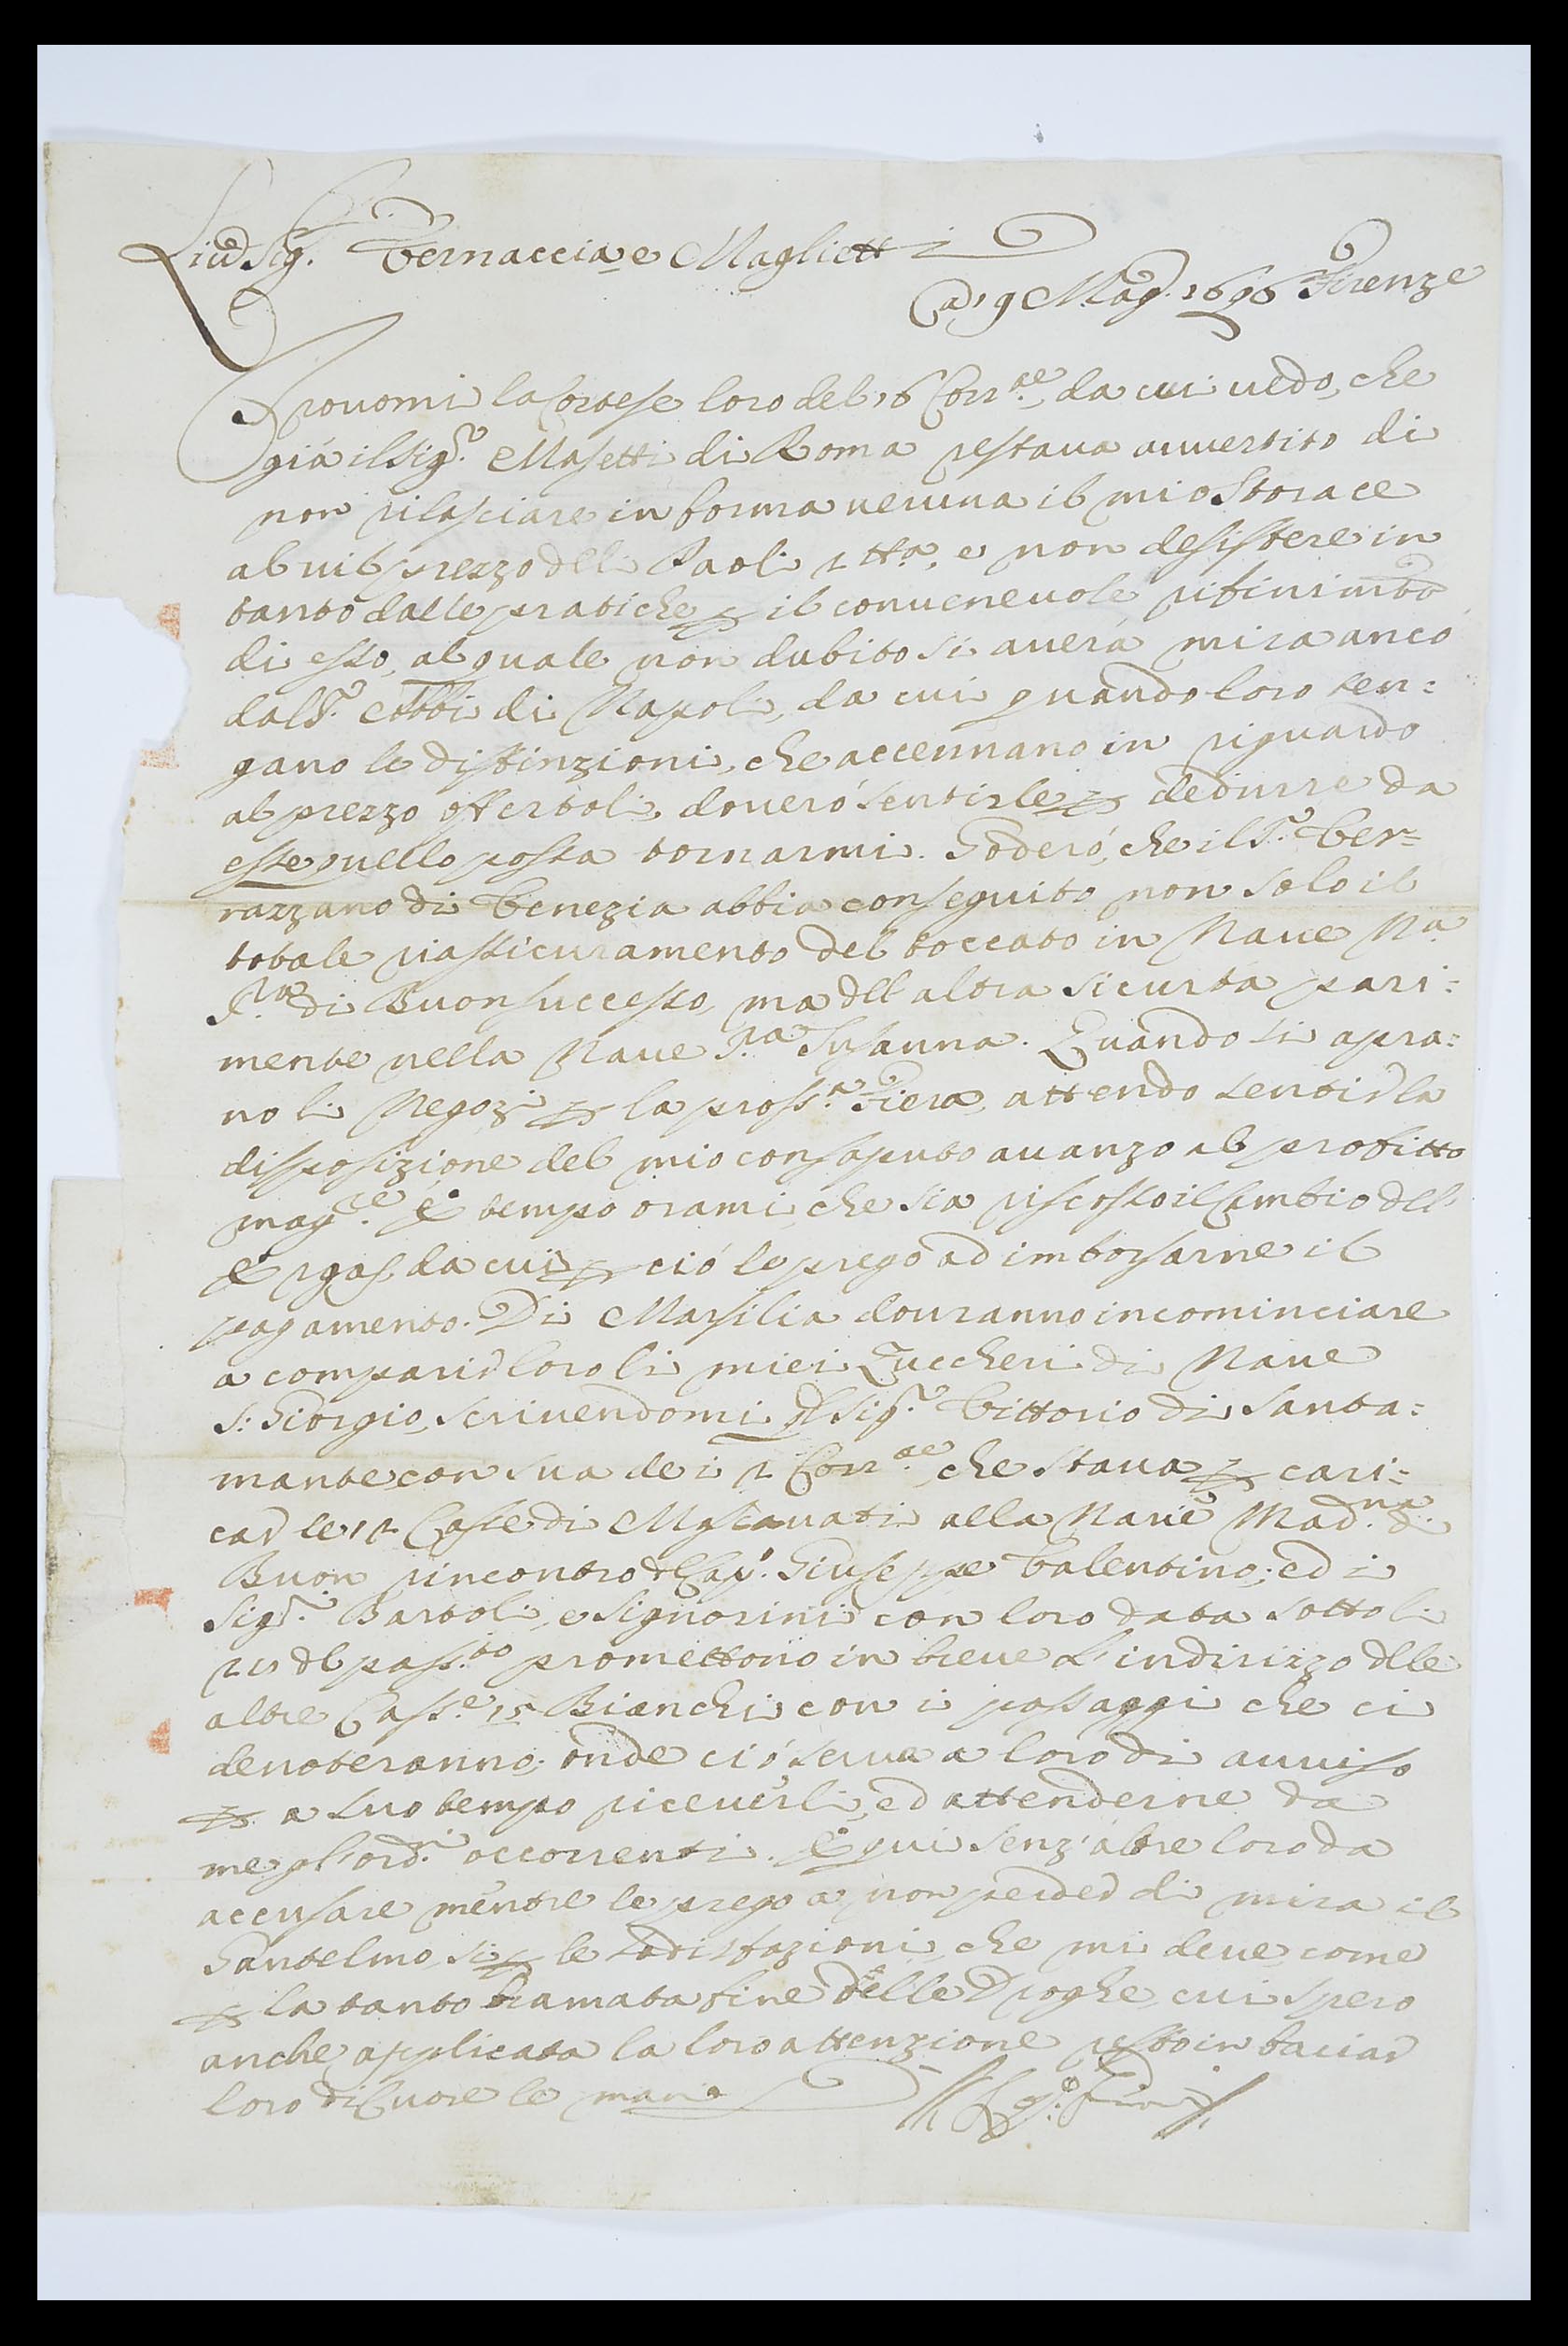 Sig.ri Vernaccia e Magliett
A 19 Mag. 1696 Firenze
Trovomi la Cortese loro del 16 Corr.te, da cui vedo, che
già il Sig.r Masetti di Roma restava avvertito di
non rilasciare in forma veruna il mio Storace
al vil prezzo deli Paoli 2 tta, e non desistere in
tanto dalle pratiche p il convenevole rifinimto
di esso, al quale non dubito si averà mira anco
dal S.r di Napoli, da cui quando loro ten=
gano le distinzioni, che accennano in riguardo
al prezzo offertoli, doverò sentirle p dedurre da
esse quello possa tornarmi. Goderò, che il S.r Ver=
razzano di Venezia abbia conseguito non solo il
totale riassicuramento del toccato in Nave N.a
S.ra di Buonsuccesso, ma dell altra sicurta pari=
mente nella Nave S.ta Susanna. Quando si apra=
no li Negozi p la pross.a Fiera, attendo sentir la
disposizione del mio consaputo avanzo al profitto
mag.re È tempo orami, che sia riscosso il Cambio dell
da cui p ciò le prego ad imborsarne il
pagamento. Di Marsilia dovranno incominciare
a comparir loro li miei Zuccheri di Nave
S: Giorgio, scrivendomi il Sig.r Vittorio di Santa=
mante con sua dei 2 Corr.te che stava p cari=
car le 12 Casse di Moscavati alla Nave Mad.na d.
Buon rincontro d Cap. Giuseppe Valentino; ed i
Sig.ri Bartoli, e Signorini con loro data sotto li
25 dl pass.to promettono in breve l'indirizzo dlle
altre Cass.e 15 Bianchi con i passaggi che ci
denoteranno, onde ciò serva a loro di avviso
p a suo tempo riceverli, ed attenderne da
me gl'ord.ni occorrenti. E qui senz'altre loro da
accusare mentre le prego a non perder di mira il
Gantelmo, si p le sodisfazioni, che mi deve, come
p la tanto bramata fine delle Droghe, cui spero
anche applicata la loro attenzione resto in baciar
loro di Cuore le mano